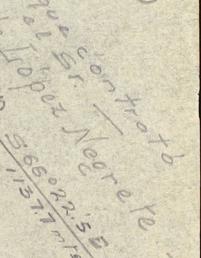 que contrató
el Sr.
López Negrete
S66°22'5E
1137.7 mts